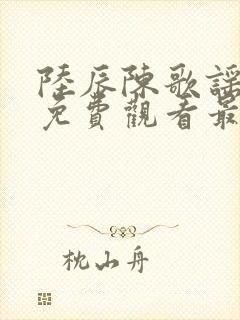 陸辰陳歌謠
免費觀看最
枕山舟